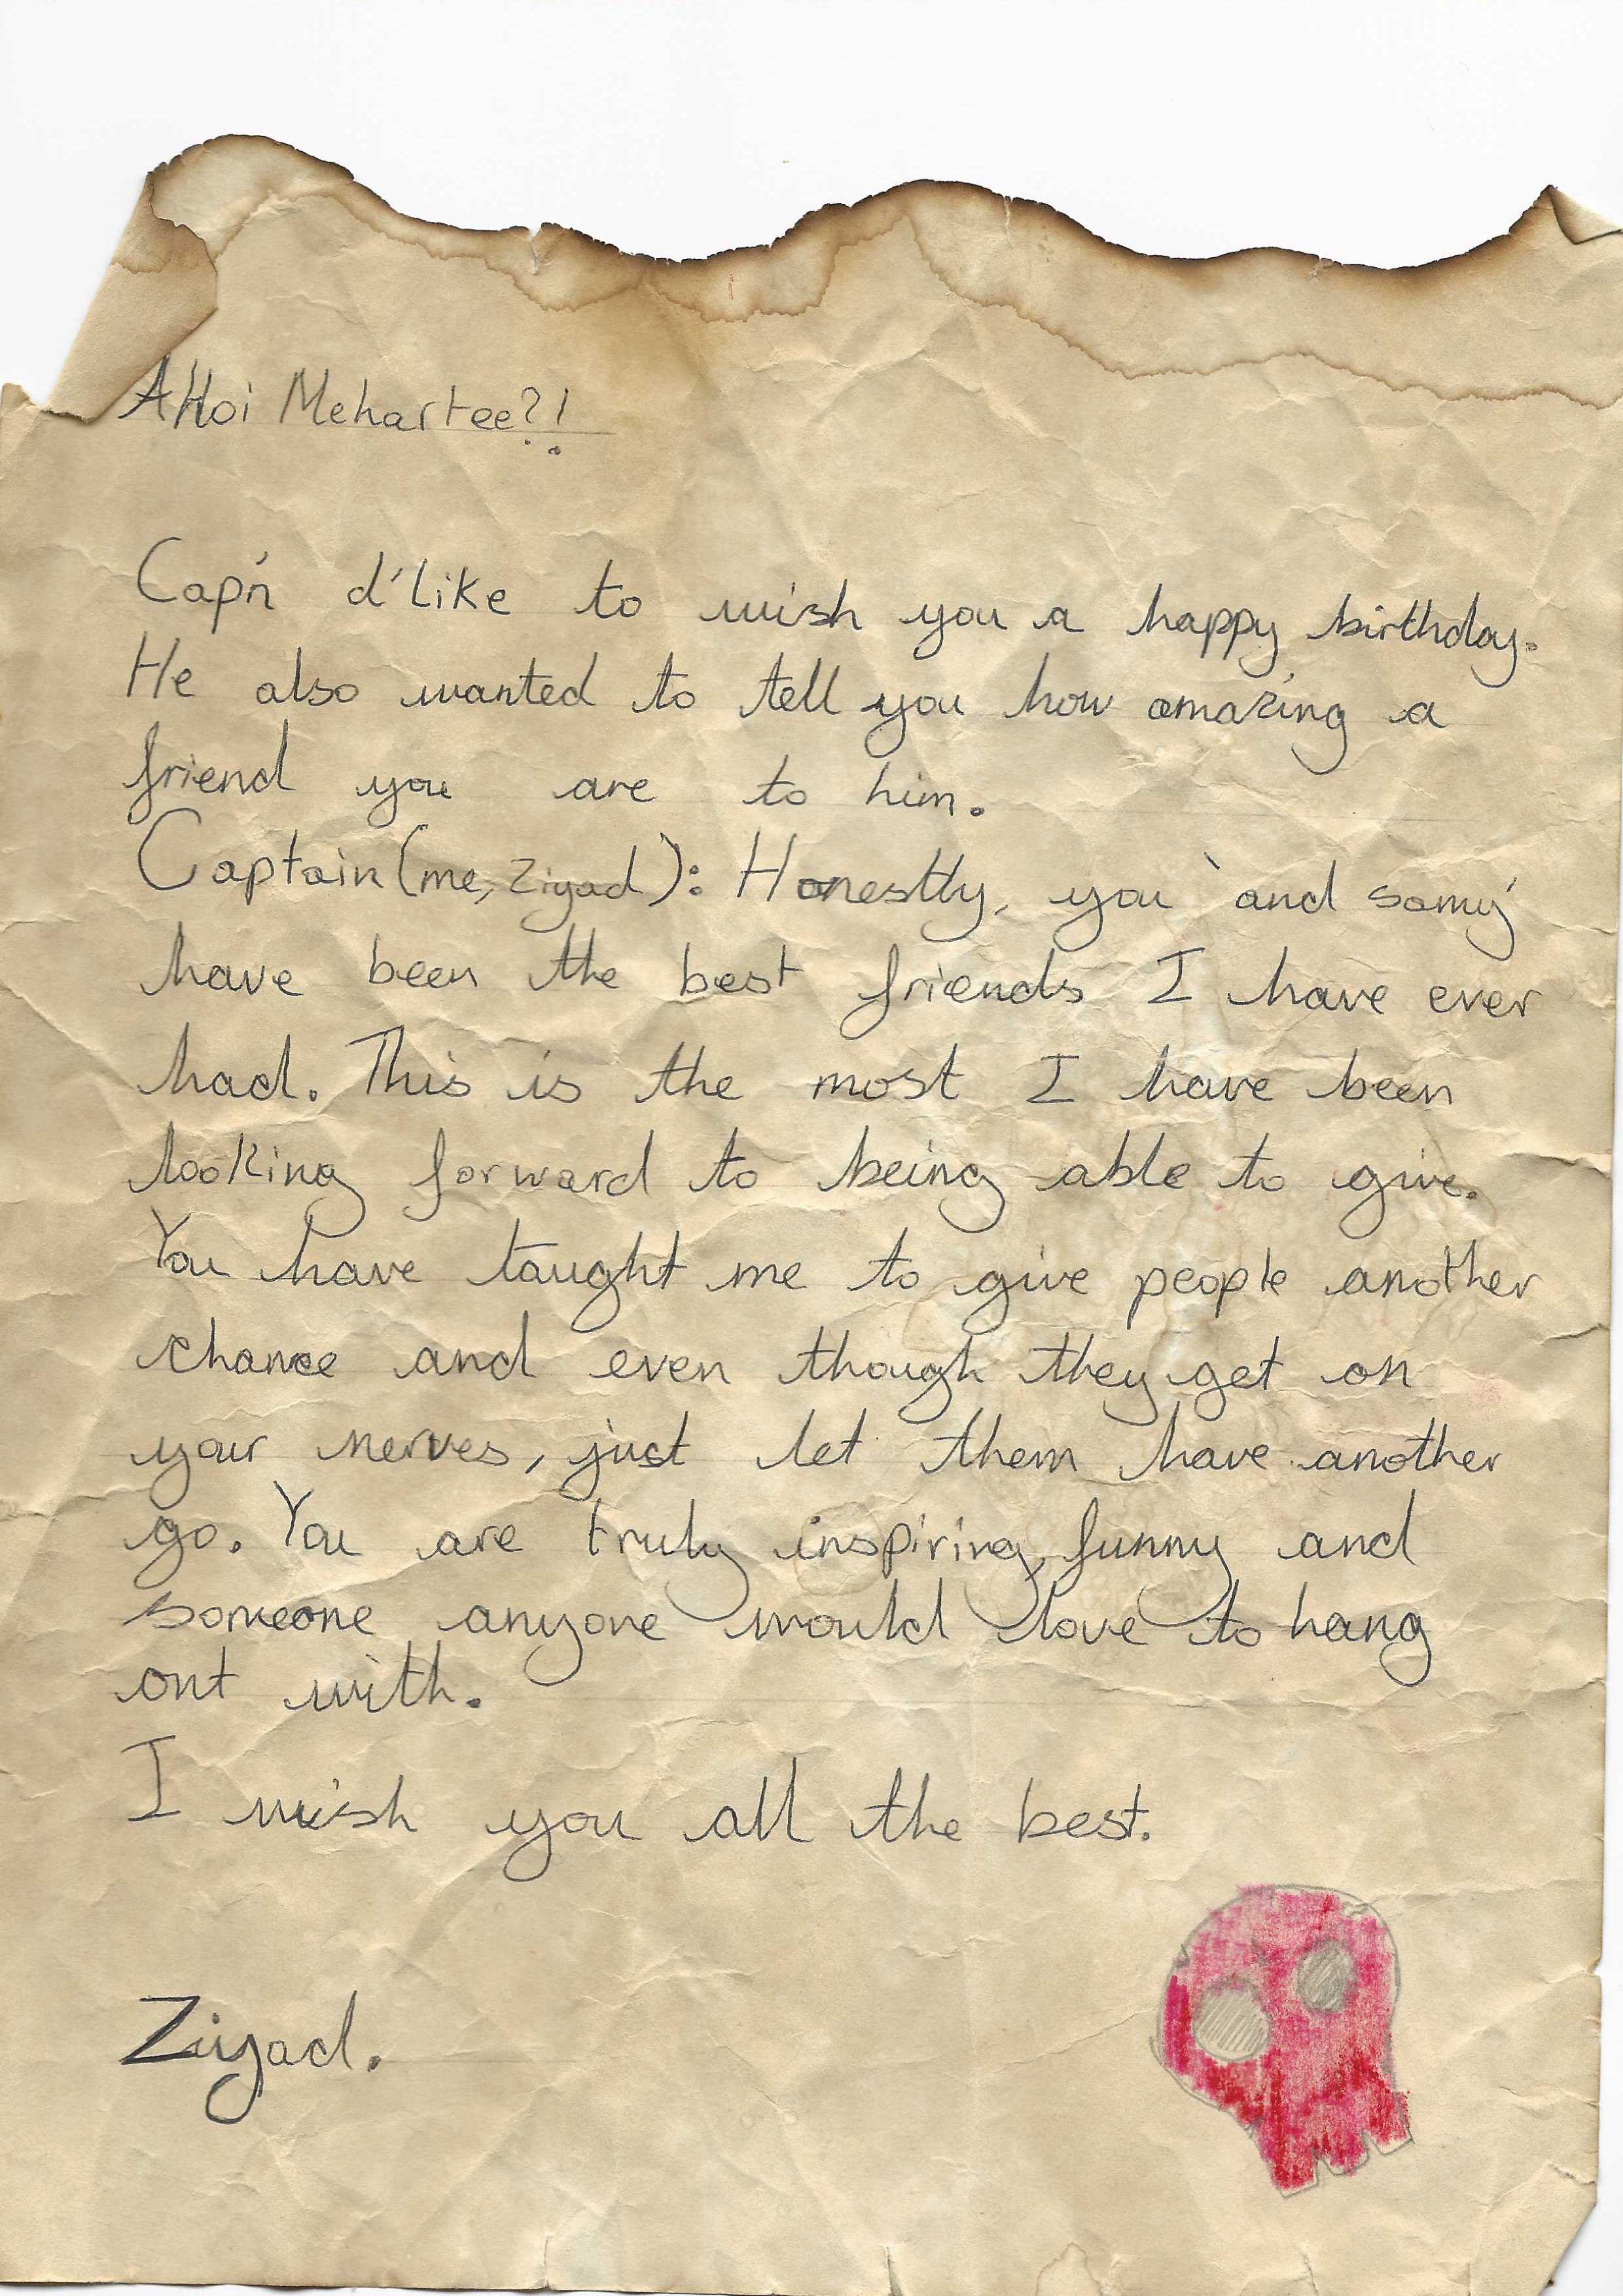 AHoi Mehartee?!
Cap'n d'like to wish you a happy birthday.
He also wanted to tell you how amazing a
friend you are to him.
Captain (me, Ziyad): Honestly, you and samy
have been the best friends I have ever
had. This is the most I have been
looking forward to being able to give.
You have taught me to give people another
chance and even though they get on
your nerves, just let them have another
go. You are truly inspiring, funny and
someone anyone would love to hang
out with.
I wish you all the best.
Ziyad.